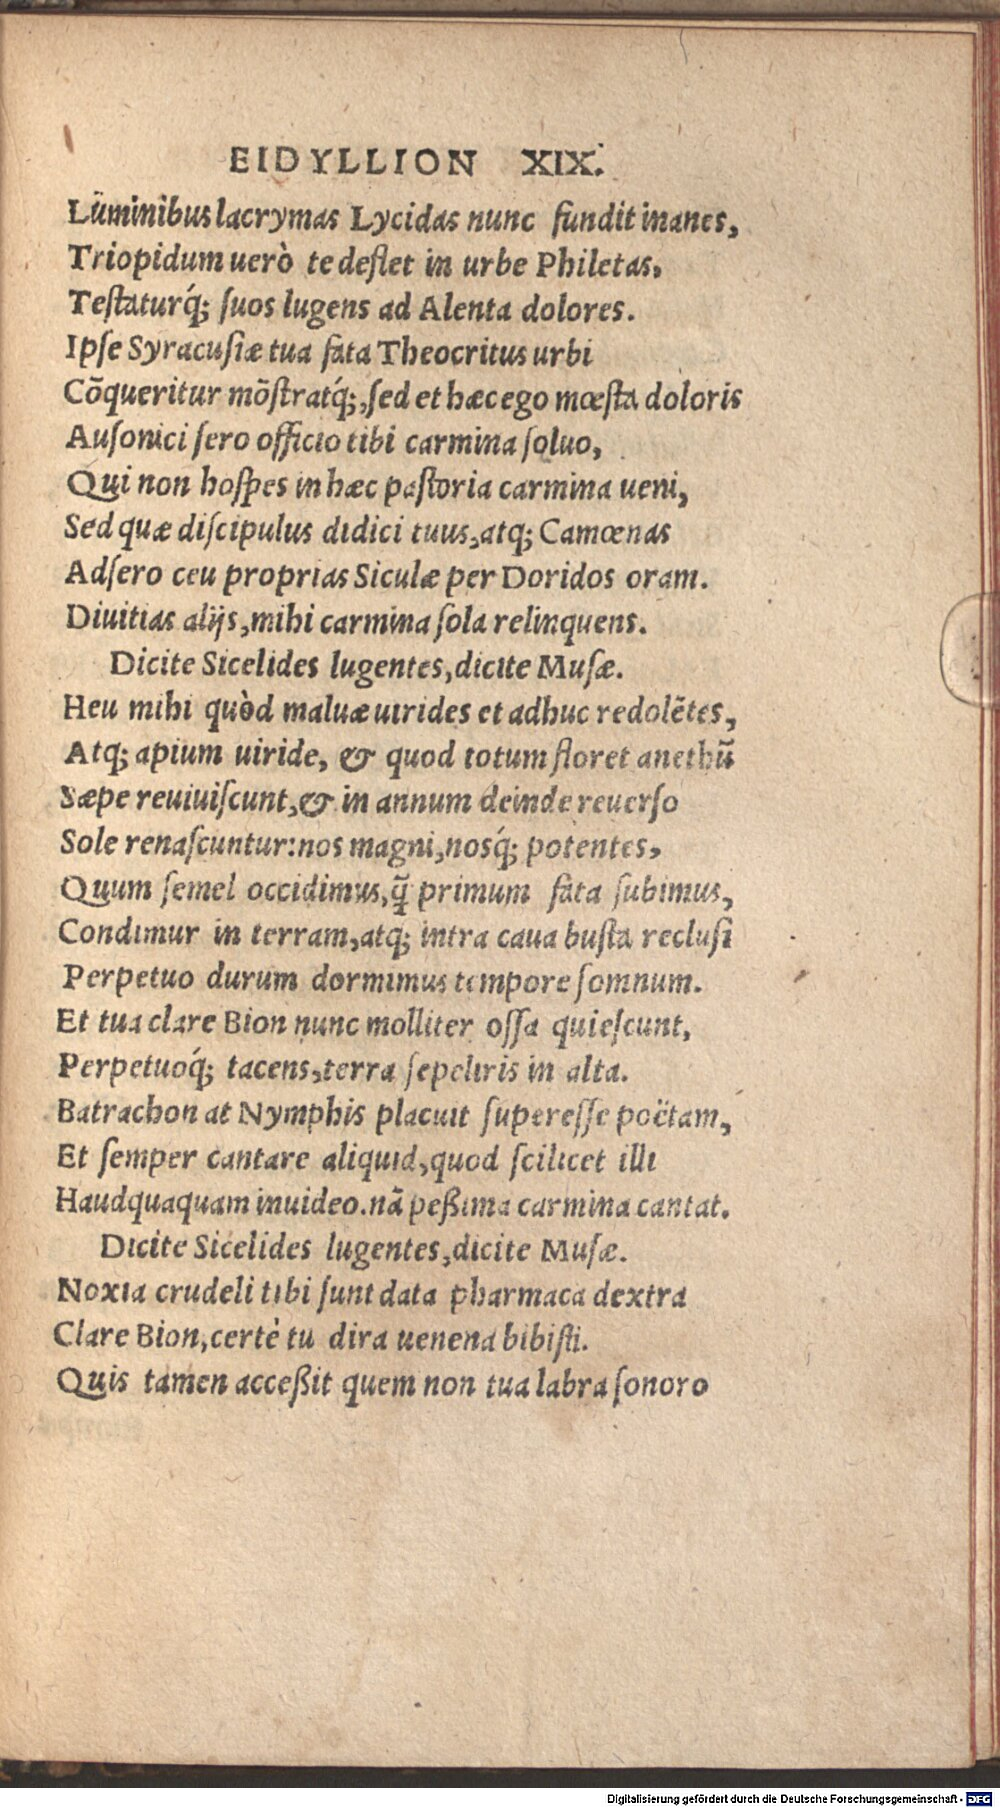 EIDYLLION XIX.
Luminibus lacrymas Lycidas nunc fundit inanes,
Triopidum uerò te deflet in urbe Philetas,
Testaturq́; suos lugens ad Alenta dolores.
Ipse Syracusiæ tua fata Theocritus urbi
Cõqueritur mõstratq́;, sed et hæc ego mœsta doloris
Ausonici sero officio tibi carmina soluo,
Qui non hospes in hæc pastoria carmina ueni,
Sed quæ discipulus didici tuus, atq; Camœnas
Adsero ceu proprias Siculæ per Doridos oram.
Diuitias alijs, mihi carmina sola relinquens.
Dicite Sicelides lugentes, dicite Musæ.
Heu mihi quòd maluæ uirides et adhuc redolẽtes,
Atq; apium uiride, & quod totum floret anethũ
Sæpe reuiuiscunt, & in annum deinde reuerso
Sole renascuntur: nos magni, nosq́; potentes,
Quum semel occidimus, q̃ primum fata subimus,
Condimur in terram, atq; intra caua busta reclusi
Perpetuo durum dormimus tempore somnum.
Et tua clare Bion nunc molliter ossa quiescunt,
Perpetuoq́; tacens, terra sepeliris in alta.
Batrachon at Nymphis placuit superesse poëtam,
Et semper cantare aliquid, quod scilicet illi
Haudquaquam inuideo. nã peßima carmina cantat.
Dicite Sicelides lugentes, dicite Musæ.
Noxia crudeli tibi sunt data pharmaca dextra
Clare Bion, certè tu dira uenena bibisti.
Quis tamen acceßit quem non tua labra sonoro
Digitalisierung gefördert durch die Deutsche Forschungsgemeinschaft - DFG